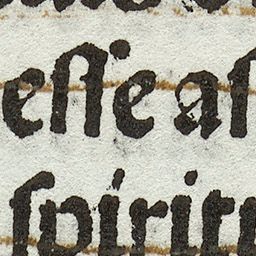 eſſe aſ
ſpiritu